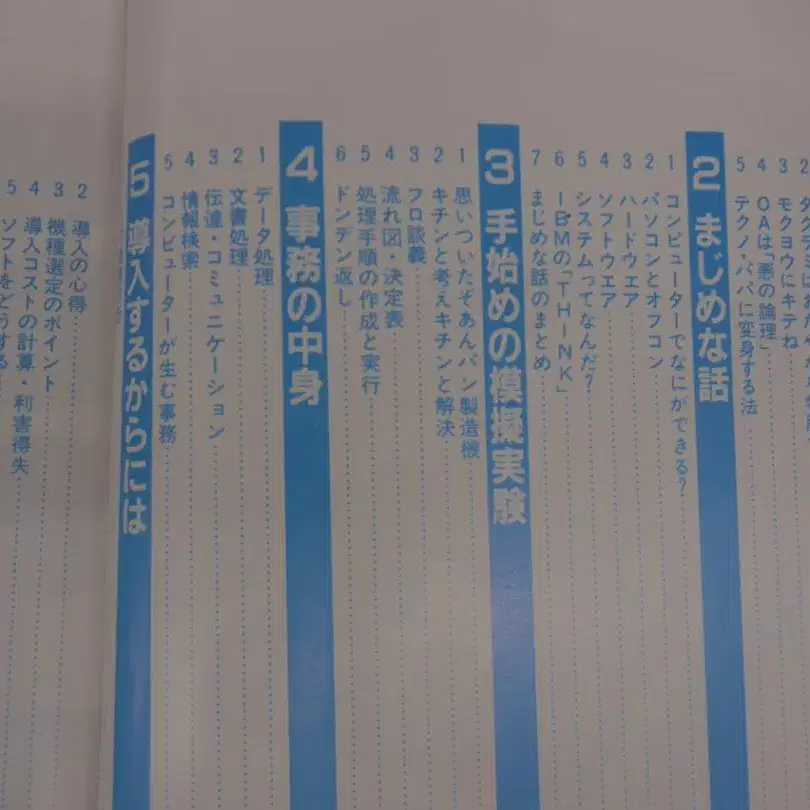 3 モクヨウにキテね
4 OAは「悪の論理」
5 テクノ・パパに変身する法
2 まじめな話
1 コンピューターでなにができる?
2 パソコンとオフコン
3 ハードウエア
4 ソフトウエア
5 システムってなんだ?
6 IBMの「THINK」
7 まじめな話のまとめ
3 手始めの模擬実験
1 思いついたぞあんパン製造機
2 キチンと考えキチンと解決
3 フロ談義
4 流れ図・決定表
5 処理手順の作成と実行
6 ドンデン返し
4 事務の中身
1 データ処理
2 文書処理
3 伝達・コミュニケーション
4 情報検索
5 コンピューターが生む事務
5 導入するからには
2 導入の心得
3 機種選定のポイント
4 導入コストの計算・利害得失
5 ソフトをどうする